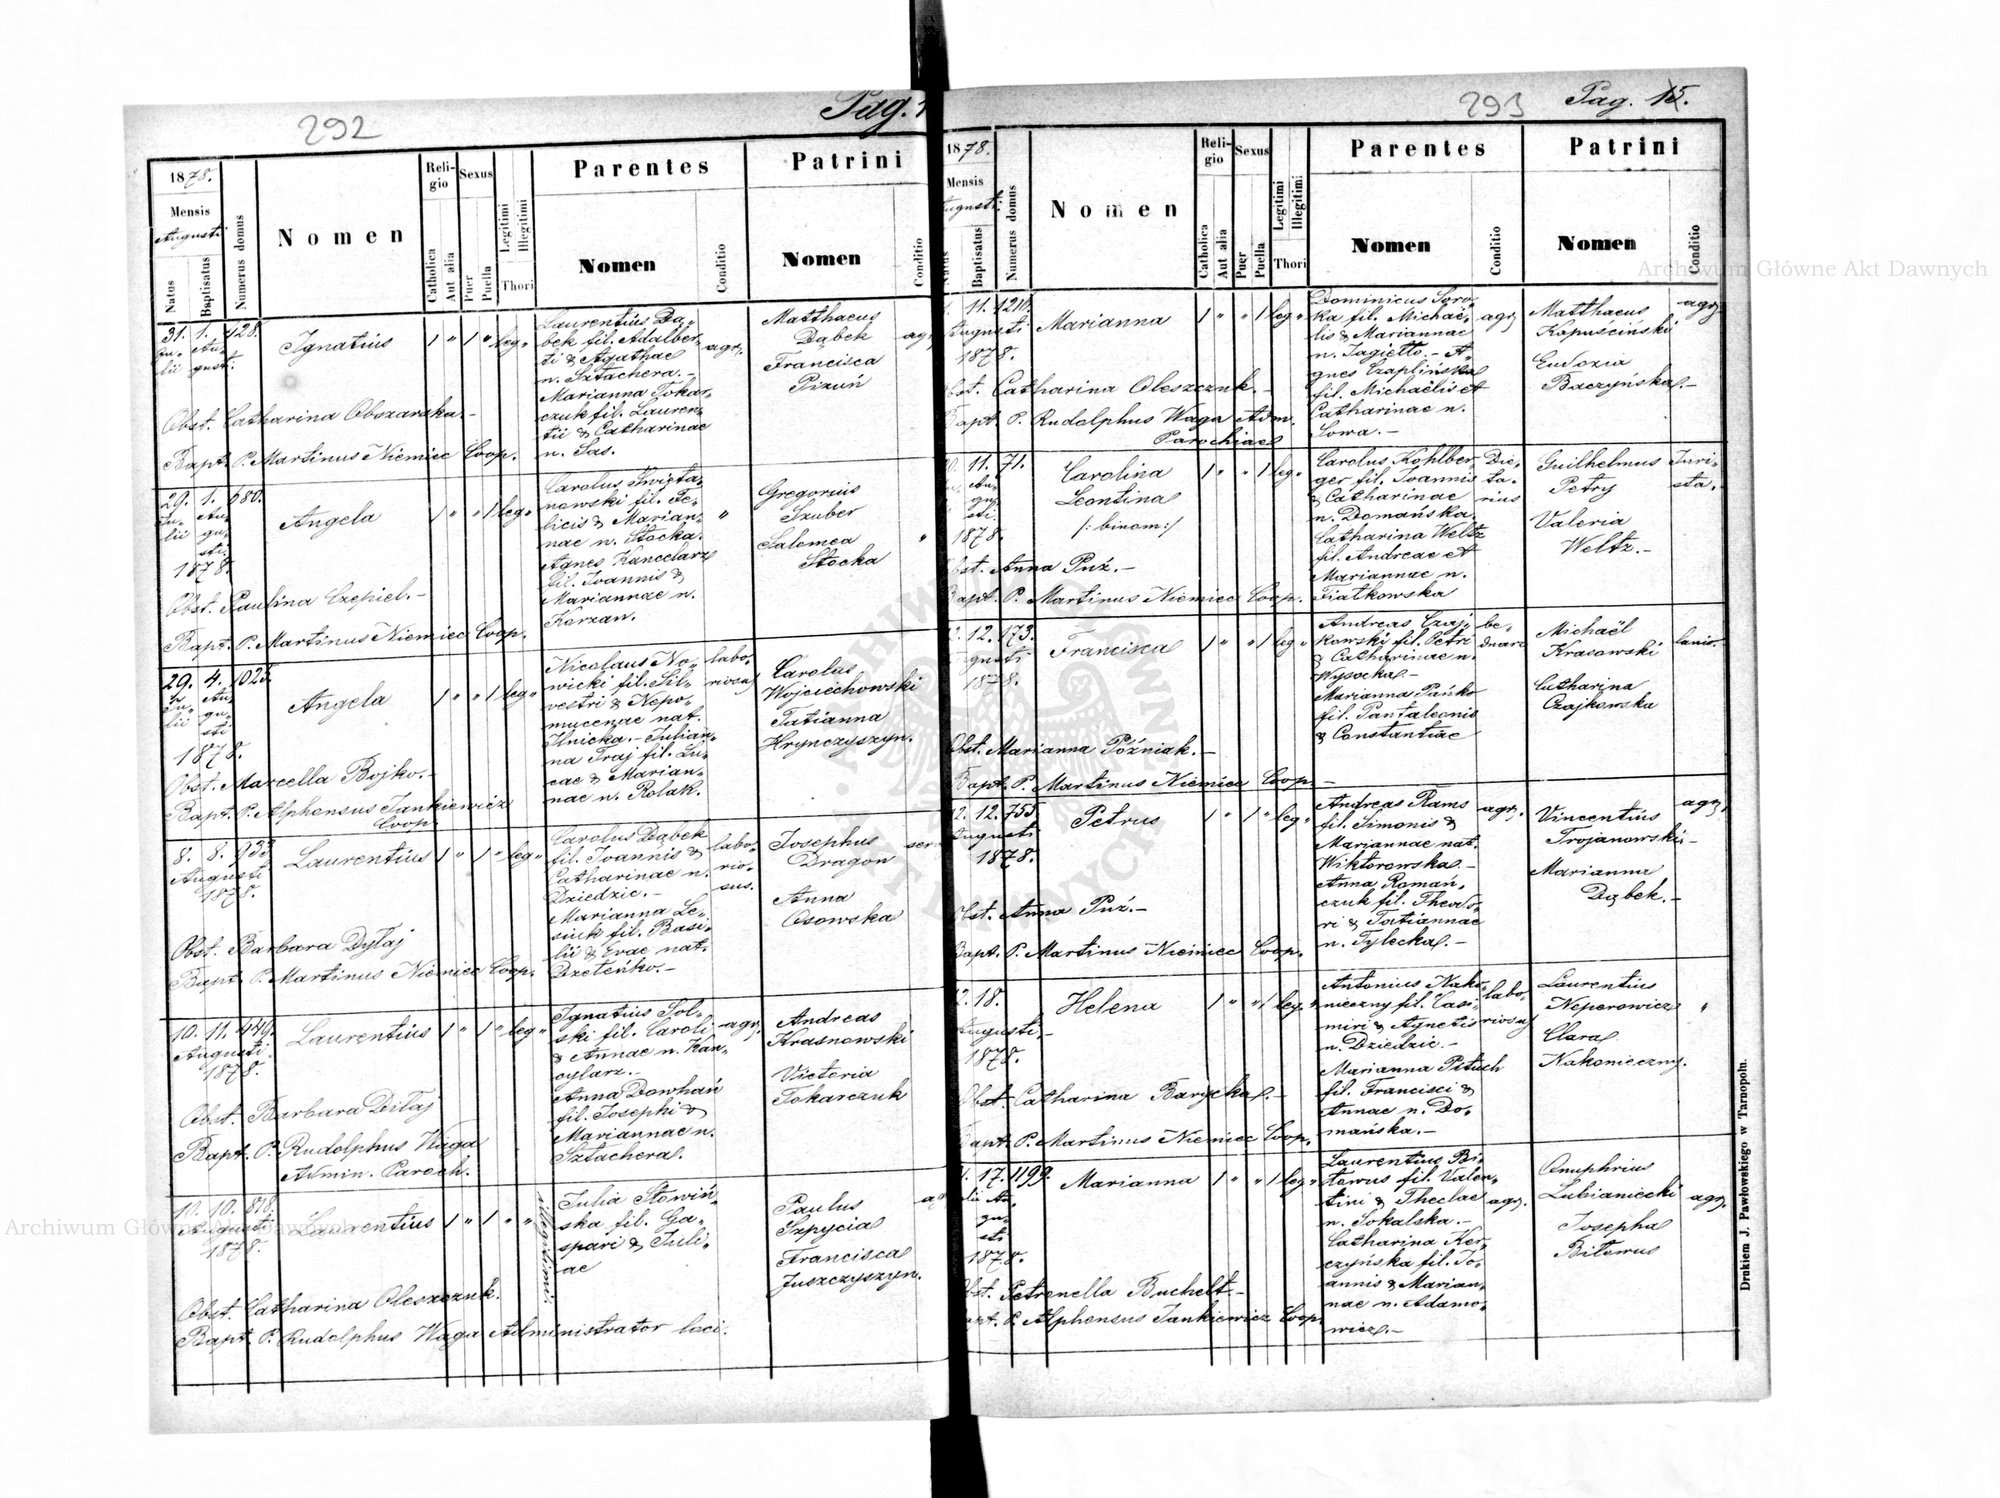 292
Pag. 1
1878.
Mensis
Augusti
Natus
Baptisatus
Numerus domus
Nomen
Reli-
gio
Catholica
Aut alia
Sexus
Puer
Puella
Legitimi
Illegitimi
Thori
Parentes
Nomen
Conditio
Patrini
Nomen
Conditio
31. 1. 428.
Ju- Au-
lii gust.
Ignatius
1 " 1 " leg. "
Laurentius Dą-
bek fil. Adalber-
ti & Agathae
n. Sztachera. -
Marianna Tokar-
czuk fil. Lauren-
tii & Catharinae
n. Sas.
agr.
Matthaeus
Dąbek
Francisca
Pizuń
agr
Obst. Catharina Obszarska. -
Bapt. P. Martinus Niemiec Coop.
29. 1. 680.
Ju- Au-
lii gu-
sti
1878.
Angela
1 " " 1 leg. "
Carolus Święta-
nowski fil. Fe-
licis & Marian-
nae n. Stocka.
Agnes Kancelarz
fil. Joannis &
Mariannae n.
Korzan.
"
Gregorius
Szuber
Salomea
Stocka
"
Obst. Paulina Czepiel. -
Bapt. P. Martinus Niemiec Coop.
29. 4. 1025.
Ju- Au-
lii gu-
sti
1878.
Angela
1 " " 1 leg. "
Nicolaus No-
wicki fil. Sil-
vestri & Nepo-
mucenae nat.
Ilnicka. - Julian-
na Traj fil. Lu-
cae & Marian-
nae n. Rolak.
labo-
riosus
Carolus
Wojciechowski
Tatianna
Hrynczyszyn.
Obst. Marcella Bojko. -
Bapt. P. Alphonsus Jankiewicz
Coop.
8. 8. 933.
Augusti
1878.
Laurentius
1 " 1 " leg. "
Carolus Dąbek
fil. Joannis &
Catharinae n.
Dziedzic. -
Marianna Le-
siuk fil. Basi-
lii & Evae nat.
labo-
rio-
sus.
Josephus
Dragon
Anna
Osowska
Obst. Barbara Dyłaj
Bapt. P. Martinus Niemiec Coop.
10. 11. 449.
Augusti
1878.
Laurentius
1 " 1 " leg. "
Ignatius Sol-
ski fil. Caroli
& Annae n. Kan-
cylarz. -
Anna Dowhań
fil. Josephi &
Mariannae n.
Sztachera.
agr.
Andreas
Krasnowski
Victoria
Tokarczuk
Obst. Barbara Diłaj
Bapt. P. Rudolphus Waga
Admin. Paroch.
10. 10. 878.
Augusti
1878.
Laurentius
1 " 1 " "
illegitimi
Julia Słowiń-
ska fil. Ga-
spari & Juli-
ae
Paulus
Szpycia
Francisca
Juszczyszyn.
Obst. Catharina Oleszczuk.
Bapt. P. Rudolphus Waga Administrator loci.
293
Pag. 15.
1878.
Mensis
Augusti
Natus
Baptisatus
Numerus domus
Nomen
Reli-
gio
Catholica
Aut alia
Sexus
Puer
Puella
Legitimi
Illegitimi
Thori
Parentes
Nomen
Conditio
Patrini
Nomen
Conditio
11. 1210.
Augusti
1878.
Marianna
1 " " 1 leg. "
Dominicus Soro-
ka fil. Michaë-
lis & Mariannae
n. Jagiełło. - A-
gnes Czaplińska
fil. Michaëlis et
Catharinae n.
Sowa. -
agr.
Matthaeus
Kopuściński
Eudoxia
Baczyńska. -
agr.
Obst. Catharina Oleszczuk. -
Bapt. P. Rudolphus Waga Adm.
Parochiae
11. 71.
Au-
gu-
sti
1878.
Carolina
Leontina
/: binom :/
1 " " 1 leg. "
Carolus Kohlber-
ger fil. Joannis
& Catharinae
n. Domańska.
Catharina Weltz
fil. Andreae et
Mariannae n.
Fiatkowska
Die-
ta-
rius
Guilhelmus
Petry
Valeria
Weltz. -
Juri-
sta.
Obst. Anna Puź. -
Bapt. P. Martinus Niemiec Coop.
12. 173.
Augusti
1878.
Francisca
1 " " 1 leg. "
Andreas Czaj-
kowski fil. Petri
& Catharinae n.
Wysocka. -
Marianna Pańko
fil. Pantaleonis
& Constantiae
be-
dnarz
Michaël
Krasowski
Catharina
Czajkowska
lanio.
Obst. Marianna Poźniak. -
Bapt. P. Martinus Niemiec Coop. -
12. 12. 755.
Augusti
1878.
Petrus
1 " 1 " leg. "
Andreas Rams
fil. Simonis &
Mariannae nat.
Wiktorowska. -
Anna Romań-
czuk fil. Theodo-
ri & Tatiannae
n. Tylecka. -
agr.
Vincentius
Trojanowski -
Marianna
Dąbek. -
agr.
Obst. Anna Puź. -
Bapt. P. Martinus Niemiec Coop.
12. 18.
Augusti
1878.
Helena
1 " " 1 leg. "
Antonius Nako-
nieczny fil. Casi-
miri & Agnetis
n. Dziedzic. -
Marianna Pituch
fil. Francisci &
Annae n. Do-
mańska. -
labo-
riosus
Laurentius
Neperowicz
Clara
Nakonieczny.
"
Obst. Catharina Barycka. -
Bapt. P. Martinus Niemiec Coop.
17. 1199.
Au-
gu-
sti
1878.
Marianna
1 " " 1 leg. "
Laurentius Bi-
towus fil. Valen-
tini & Theclae
n. Sokalska. -
Catharina Ker-
czyńska fil. Jo-
annis & Marian-
nae n. Adamo-
wicz. -
agr.
Onuphrius
Łubianiecki
Josepha
Bitowus
agr.
Obst. Petronella Buchelt. -
Bapt. P. Alphonsus Jankiewicz Coop.
Drukiem J. Pawłowskiego w Tarnopolu.
Archiwum Główne Akt Dawnych
Archiwum Główne Akt Dawnych